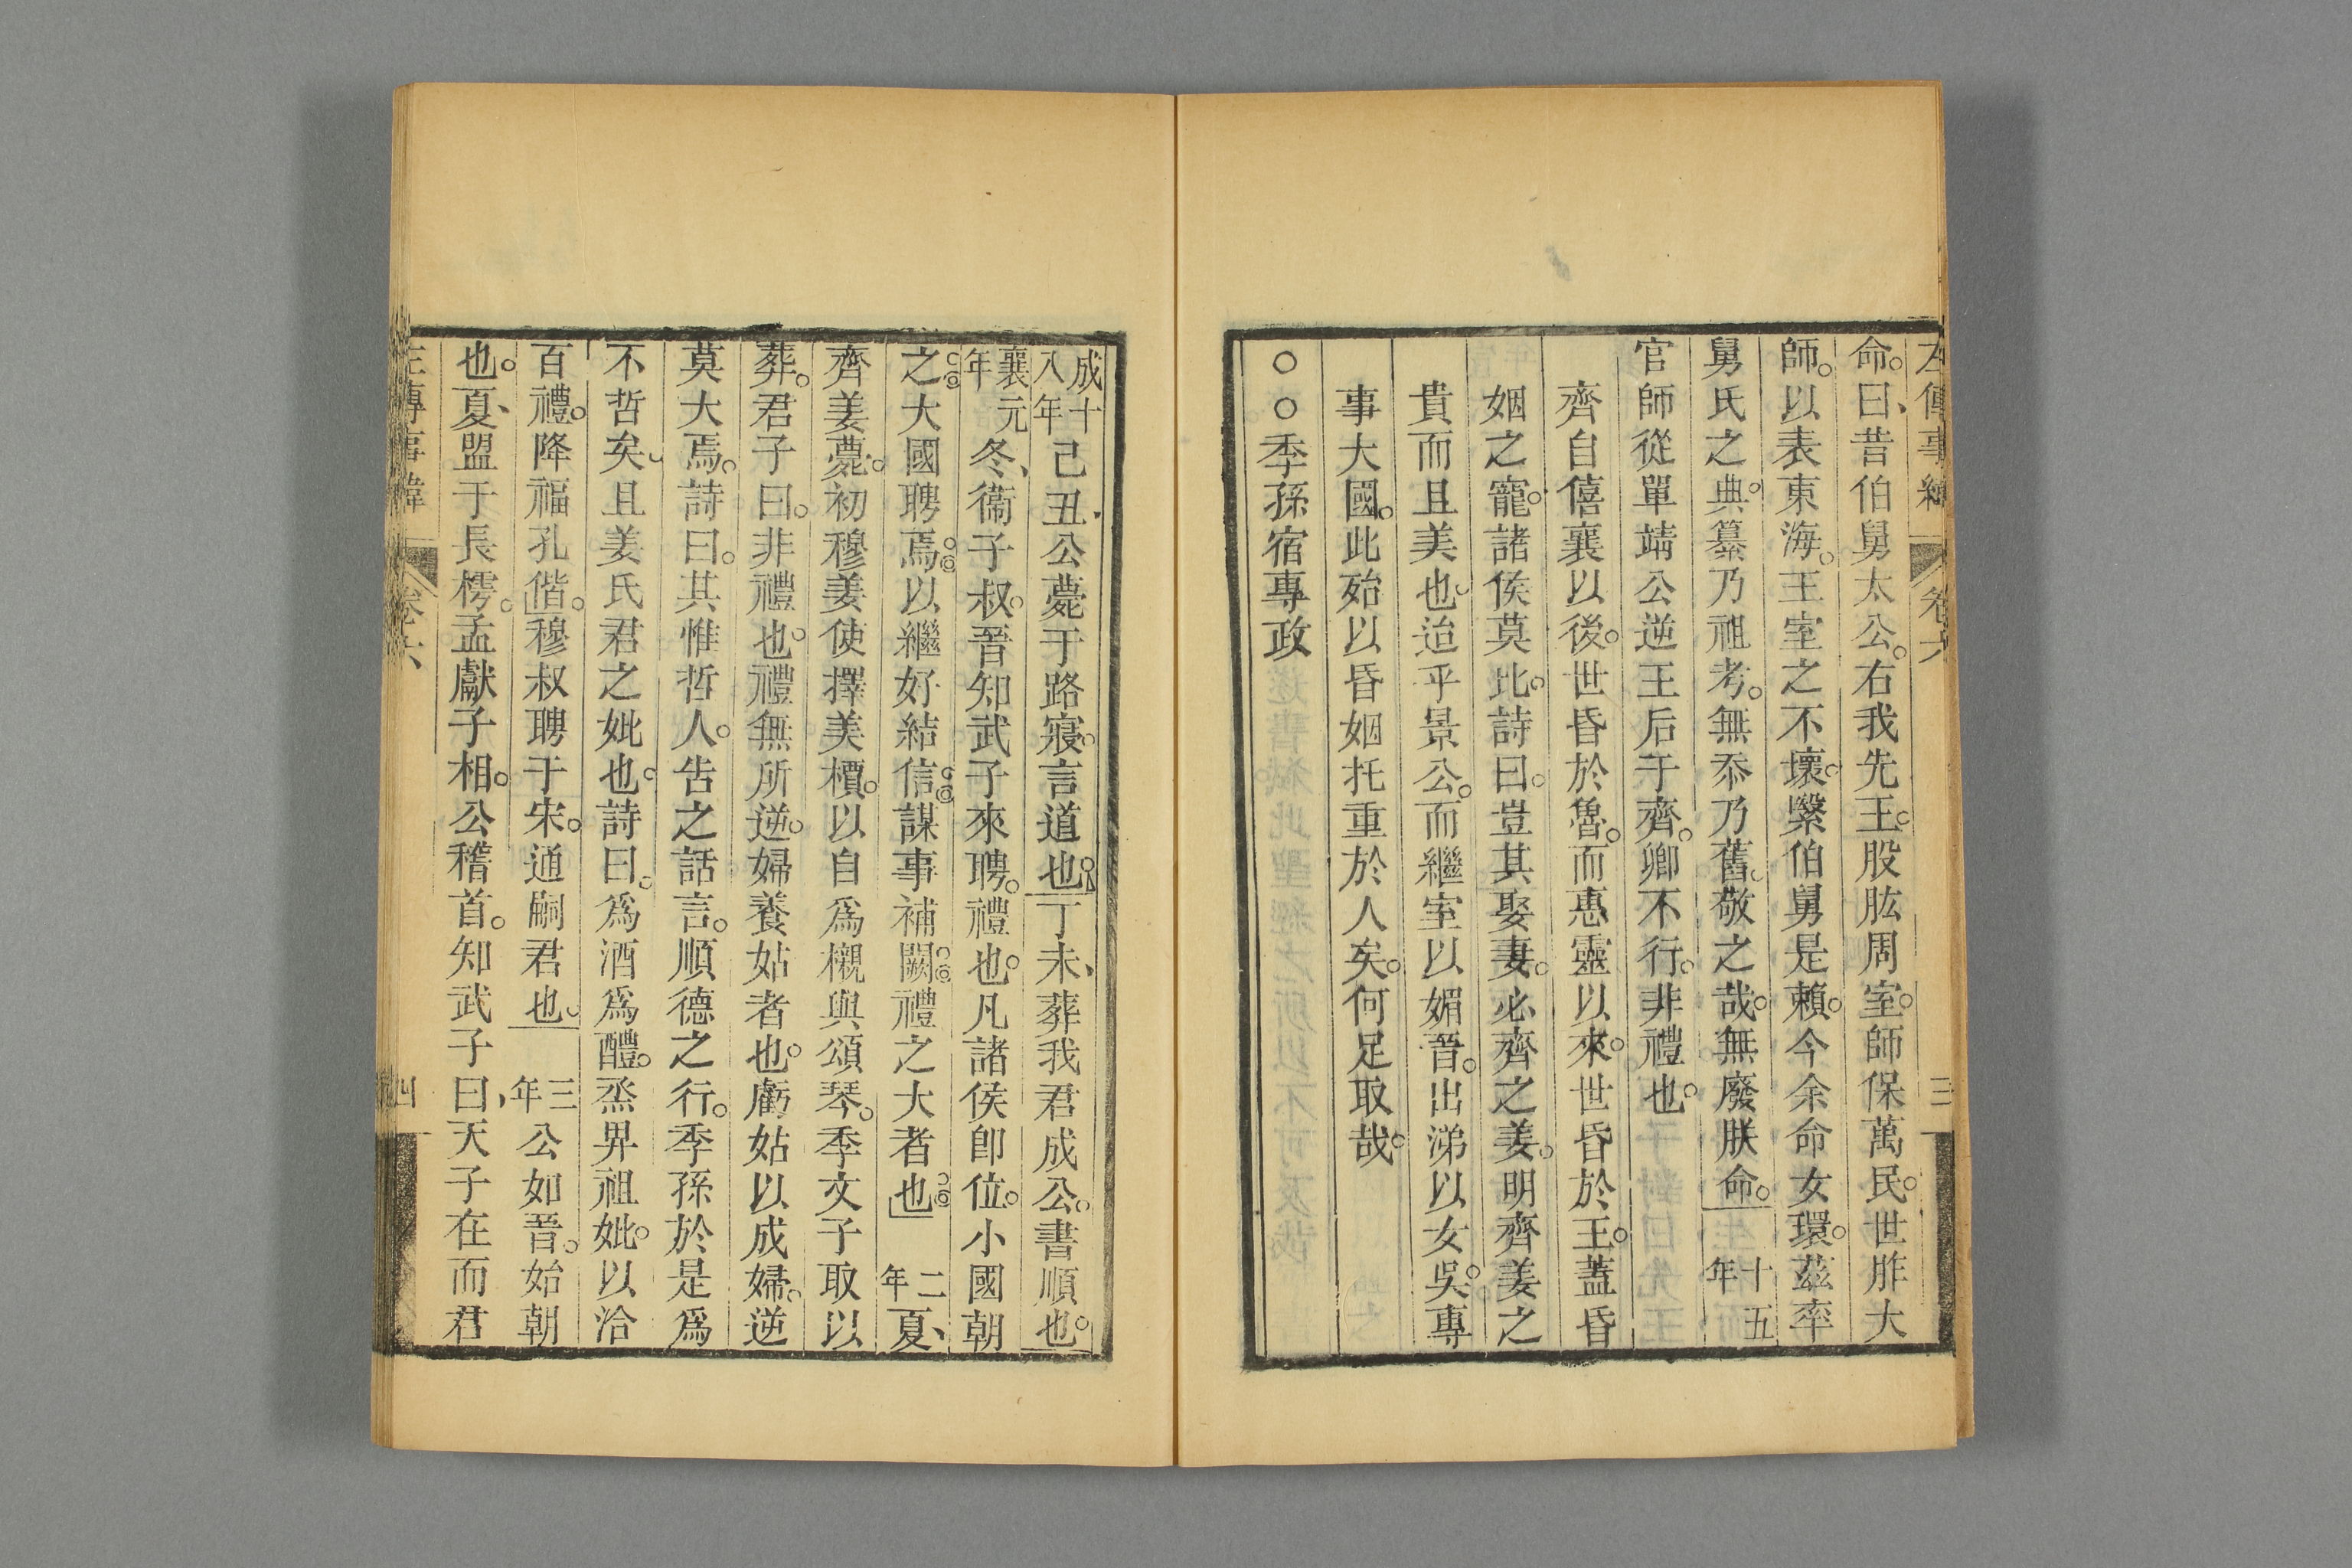 左傳事緯 卷六 三
命曰昔伯舅太公右我先王股肱周室師保萬民世胙大
師以表東海王室之不壞繄伯舅是賴今余命女環茲率
舅氏之典纂乃祖考無忝乃舊敬之哉無廢朕命十五年
官師從單靖公逆王后于齊卿不行非禮也
齊自僖襄以後世昏於魯而惠靈以來世昏於王蓋昏
姻之寵諸侯莫比詩曰豈其娶妻必齊之姜明齊姜之
貴而且美也迨乎景公而繼室以媚晉出涕以女吳專
事大國此殆以昏姻托重於人矣何足取哉
○○季孫宿專政
成十八年己丑公薨于路寢言道也丁未葬我君成公書順也
襄元年冬衞子叔晉知武子來聘禮也凡諸侯卽位小國朝
之大國聘焉以繼好結信謀事補闕禮之大者也二年夏
齊姜薨初穆姜使擇美檟以自爲櫬與頌琴季文子取以
葬君子曰非禮也禮無所逆婦養姑者也虧姑以成婦逆
莫大焉詩曰其惟哲人告之話言順德之行季孫於是爲
不哲矣且姜氏君之妣也詩曰爲酒爲醴烝畀祖妣以洽
百禮降福孔偕穆叔聘于宋通嗣君也三年公如晉始朝
也夏盟于長樗孟獻子相公稽首知武子曰天子在而君
左傳事緯 卷六 四